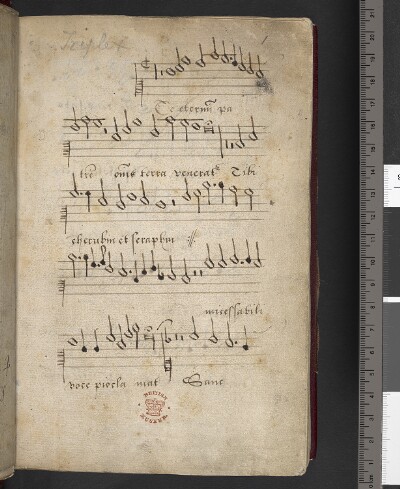 Triplex
1
Te eternu pa
tre omis terra venerat Tibi
cherubin et seraphin
incessabili
voce procla mat Sanc
BRITISH
MUSEUM